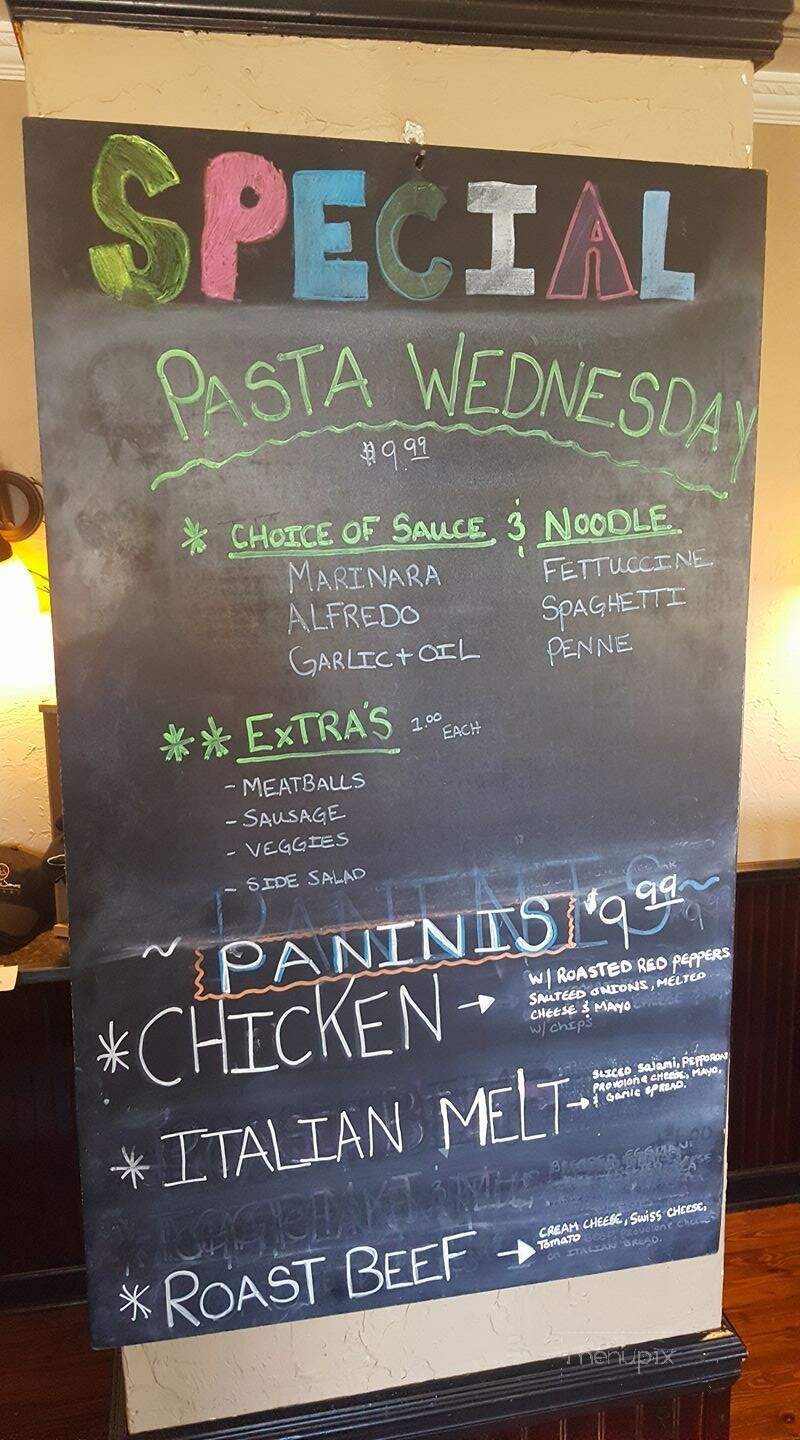 SPECIAL
PASTA WEDNESDAY
$9.99
* CHOICE OF SAUCE & NOODLE
MARINARA FETTUCCINE
ALFREDO SPAGHETTI
GARLIC + OIL PENNE
** EXTRA'S 1.00 EACH
- MEATBALLS
- SAUSAGE
- VEGGIES
- SIDE SALAD
~ PANINIS $9.99 ~
* CHICKEN → W/ ROASTED RED PEPPERS
SAUTEED ONIONS, MELTED
CHEESE & MAYO
W/ CHIPS
* ITALIAN MELT → SLICED Salami, PEPPERONI
PROVOLONE CHEESE, MAYO,
& Garlic SPREAD.
* ROAST BEEF → CREAM CHEESE, SWISS CHEESE,
TOMATO
ON ITALIAN BREAD.
menupix